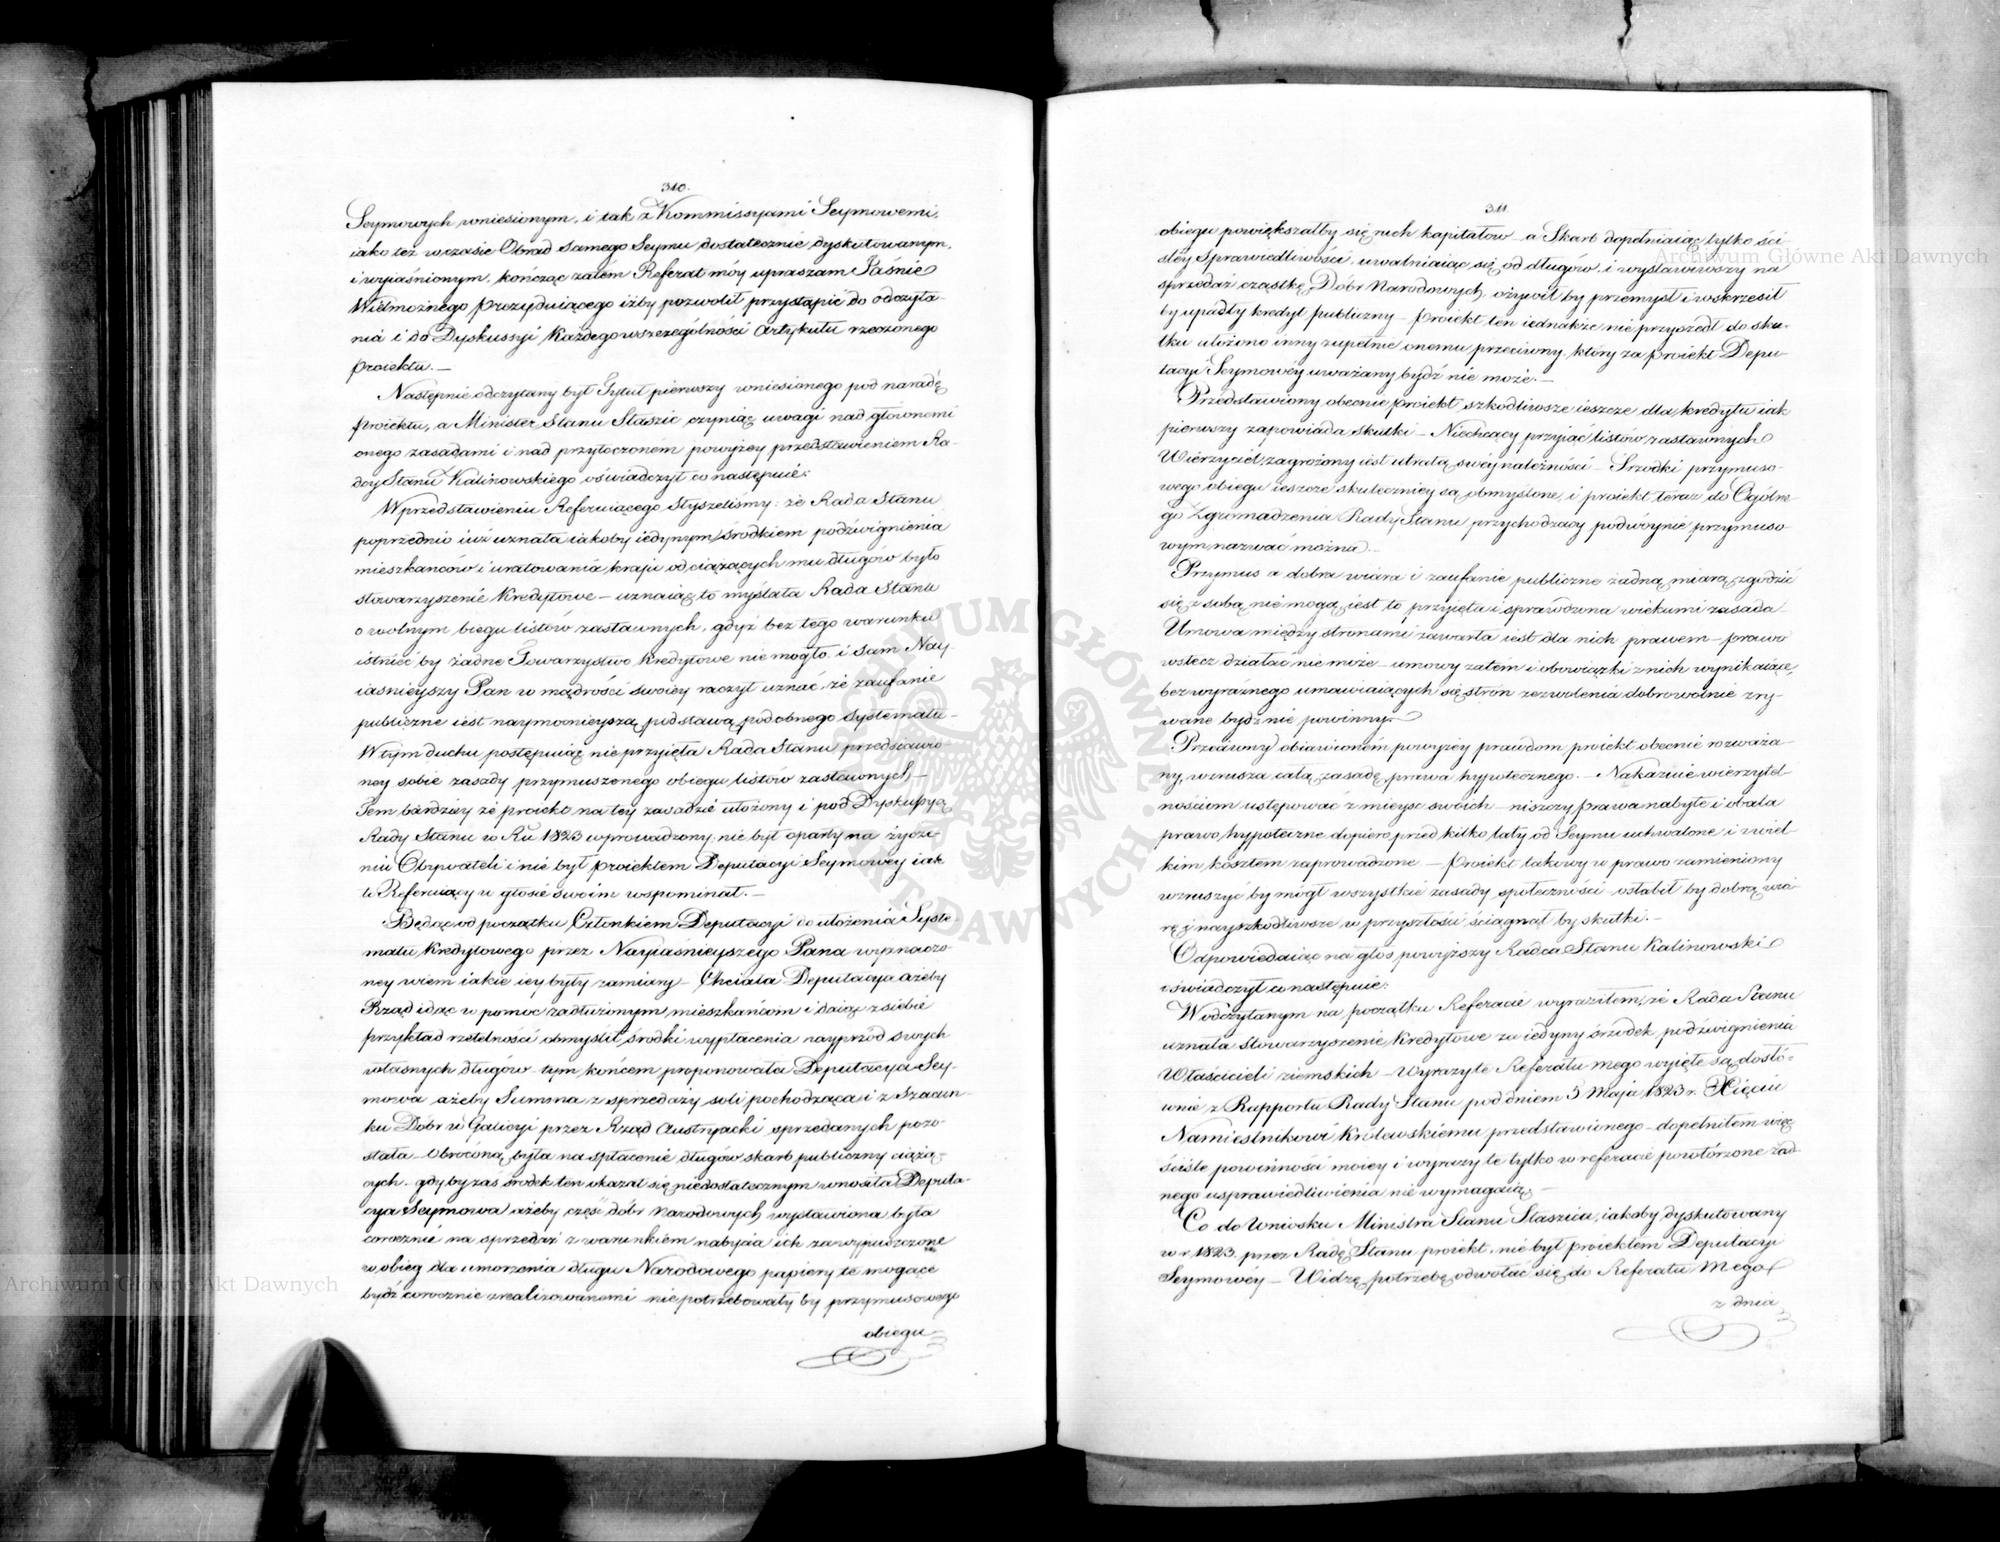 310.
Seymowych wniesionym, i tak z Kommissyami Seymowemi,
iako też wczasie Obrad samego Seymu dostatecznie dyskutowanym,
i wyiaśnionym, kończąc zatém Referat móy upraszam Jaśnie
Wielmożnego Prezyduiącego iżby pozwolił przystąpić do odczyta-
nia i do Dyskussyi każdego wszczególności Artykułu rzeczonego
proiektu. —
Następnie odczytany był Tytuł pierwszy wniesionego pod naradę
proiektu, a Minister Stanu Staszic czyniąc uwagi nad głównemi
onego zasadami i nad przytoczoném powyżey przedstawieniem Ra-
dcy Stanu Kalinowskiego oświadczył co następuie:
W przedstawieniu Referuiącego słyszeliśmy: że Rada Stanu
poprzednio iuż uznała iakoby iedynym środkiem podźwignienia
mieszkańców i uratowania kraju od ciążących mu długów było
stowarzyszenie Kredytowe — uznaiąc to myślała Rada Stanu
o wolnym biegu listów zastawnych, gdyż bez tego warunku
istnieć by żadne Towarzystwo Kredytowe nie mogło i sam Nay-
iaśnieyszy Pan w mądrości swoiey raczył uznać, że zaufanie
publiczne iest naymocnieyszą podstawą podobnego systematu —
W tym duchu postępuiąc nie przyięła Rada Stanu przedstawio-
ney sobie zasady przymuszonego obiegu listów zastawnych —
Tem bardziey że proiekt na tey zasadzie ułożony i pod Dyskussyą
Rady Stanu w Ru 1823 wprowadzony, nie był oparty na życze-
niu Obywateli i nie był proiektem Deputacyi Seymowey iak
to Referuiący w głosie swoim wspominał. —
Będąc od początku Członkiem Deputacyi do ułożenia Syste-
matu kredytowego przez Nayiaśnieyszego Pana wyznaczo-
ney wiem iakie iey były zamiary — Chciała Deputacya ażeby
Rząd idąc w pomoc zadłużonym mieszkańcom i daiąc z siebie
przykład rzetelności obmyślił środki wypłacenia nayprzód swych
własnych długów — tym końcem proponowała Deputacya Sey-
mowa ażeby Summa z sprzedaży soli pochodząca i z Szacun-
ku Dóbr w Galicyi przez Rząd Austryacki sprzedanych pozo-
stała — obrócona była na spłacenie długów skarb publiczny ciążą-
cych — gdyby zaś środek ten okazał się niedostatecznym wnosiła Deputa-
cya Seymowa ażeby część dóbr Narodowych wystawiona była
corocznie na sprzedaż z warunkiem nabycia ich za wypuszczone
w obieg dla umorzenia długu Narodowego papiery te mogące
bydź corocznie zrealizowanemi nie potrzebowały by przymusowego
obiegu
311.
obiegu powiększałby się ruch kapitałów — a Skarb dopełniaiąc tylko ści-
słey Sprawiedliwości, uwalniaiąc się od długów, i wystawiwszy na
sprzedaż cząstkę Dóbr Narodowych, ożywił by przemysł i wskrzesił
by upadły kredyt publiczny — proiekt ten iednakże nie przyszedł do sku-
tku ułożono inny zupełnie onemu przeciwny, który za proiekt Depu-
tacyi Seymowéy uważany bydź nie może. —
Przedstawiony obecnie proiekt szkodliwsze ieszcze dla kredytu iak
pierwszy zapowiada skutki — Niechcący przyiąć listów zastawnych
Wierzyciel, zagrożony iest utratą swéy należności — Srzodki przymuso-
wego obiegu ieszcze skuteczniey są obmyślone, i proiekt teraz do Ogólne-
go Zgromadzenia Rady Stanu przychodzący podwóynie przymuso-
wym nazwać można. —
Przymus a dobra wiara i zaufanie publiczne żadną miarą zgodzić
się z sobą nie mogą, iest to przyięta i sprawdzona wiekami zasada —
Umowa między stronami zawarta iest dla nich prawem — prawo
wstecz działać nie może — umowy zatem i obowiązki z nich wynikaiące,
bez wyraźnego umawiaiących się stron zezwolenia dobrowolnie zry-
wane bydź nie powinny —
Przeciwny obiawioném powyżéy prawdom proiekt obecnie rozważa-
ny, wzrusza całą zasadę prawa hypotecznego. — Nakazuie wierzytel-
nościom ustępować z mieysc swoich — niszczy prawa nabyte i obala
prawo hypoteczne dopiero przed kilko laty od Seymu uchwalone i z wiel-
kim kosztem zaprowadzone — Proiekt takowy w prawo zamieniony
wzruszyć by mógł wszystkie zasady społeczności — osłabił by dobrą wia-
rę i nayszkodliwsze w przyszłości ściągnął by skutki. —
Odpowiedaiąc na głos powyższy Radca Stanu Kalinowski
oświadczył co następuie:
W odczytanym na początku Referacie wyraziłem, że Rada Stanu
uznała stowarzyszenie kredytowe za iedyny środek podźwignienia
Właścicieli ziemskich — Wyrazy te Referatu mego wyięte są dosło-
wnie z Rapportu Rady Stanu pod dniem 5 Maja 1823 r. Xięciu
Namiestnikowi Królewskiemu przedstawionego — dopełniłem więc
ściśle powinności moiey i wyrazy te tylko w referacie powtórzone żad-
nego usprawiedliwienia nie wymagaią. —
Co do Wniosku Ministra Stanu Staszica, iakoby dyskutowany
w r. 1823 przez Radę Stanu proiekt, nie był proiektem Deputacyi
Seymowéy — Widzę potrzebę odwołać się do Referatu Mego
z dnia
ARCHIWUM GŁÓWNE AKT DAWNYCH
Archiwum Główne Akt Dawnych
Archiwum Główne Akt Dawnych